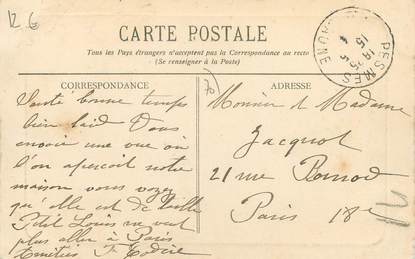 CARTE POSTALE
Tous les Pays étrangers n'acceptent pas la Correspondance au recto
(Se renseigner à la Poste)
CORRESPONDANCE
Santé bonne temps
bien laid Vous
envoie une vue où
l'on aperçoit notre
maison vous voyez
qu'elle est de taille
Petit Louis ne veut
plus aller à Paris
Amitiés
ADRESSE
Monsieur et Madame
Jacquot
21 rue
Paris 18e
PESMES